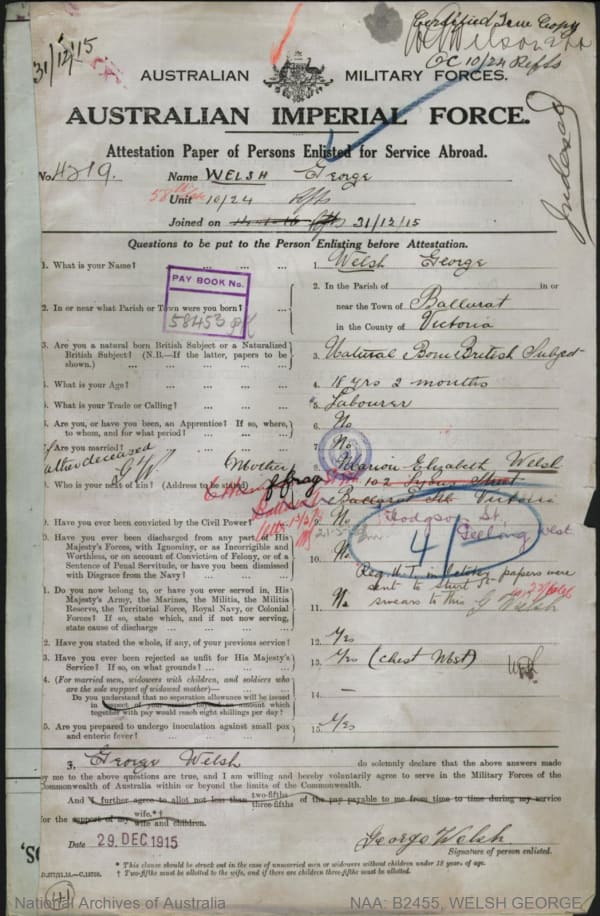 31/12/15
Certified True Copy
OC 10/24 Refts
AUSTRALIAN MILITARY FORCES.
AUSTRALIAN IMPERIAL FORCE.
Attestation Paper of Persons Enlisted for Service Abroad.
Indexed
No. 4219. Name WELSH George
58th Unit 10/24 Refts
Joined on 31/12/15
Questions to be put to the Person Enlisting before Attestation.
1. What is your Name? ... ... ... ... 1. Welsh George
PAY BOOK No.
58453
2. In or near what Parish or Town were you born? ... 2. In the Parish of in or
near the Town of Ballarat
in the County of Victoria
3. Are you a natural born British Subject or a Naturalized
British Subject? (N.B.—If the latter, papers to be
shown.) ... ... ... 3. Natural Born British Subject
4. What is your Age? ... ... ... 4. 18 yrs 2 months
5. What is your Trade or Calling? ... ... ... 5. Labourer
6. Are you, or have you been, an Apprentice? If so, where,
to whom, and for what period? ... ... 6. No
7. Are you married? ... ... ... 7. No
father deceased
G W
Mother 8. Marion Elizabeth Welsh
8. Who is your next of kin? (Address to be stated) 102 Lyons Street
Ballarat Victoria
9. Have you ever been convicted by the Civil Power? 9. No
Hodgson St.
Geelong West.
41
10. Have you ever been discharged from any part of His
Majesty's Forces, with Ignominy, or as Incorrigible and
Worthless, or on account of Conviction of Felony, or of a
Sentence of Penal Servitude, or have you been dismissed
with Disgrace from the Navy? ... ... 10. No
papers were
sent to
swears to this G Welsh
11. Do you now belong to, or have you ever served in, His
Majesty's Army, the Marines, the Militia, the Militia
Reserve, the Territorial Force, Royal Navy, or Colonial
Forces? If so, state which, and if not now serving,
state cause of discharge ... ... ... 11. No
12. Have you stated the whole, if any, of your previous service? 12. Yes
13. Have you ever been rejected as unfit for His Majesty's
Service? If so, on what grounds? ... ... 13. Yes (chest Mst)
14. (For married men, widowers with children, and soldiers who
are the sole support of widowed mother)—
Do you understand that no separation allowance will be issued
in respect of your service beyond an amount which
together with pay would reach eight shillings per day? 14. —
15. Are you prepared to undergo inoculation against small pox
and enteric fever? ... ... ... 15. Yes
I, George Welsh do solemnly declare that the above answers made
by me to the above questions are true, and I am willing and hereby voluntarily agree to serve in the Military Forces of the
Commonwealth of Australia within or beyond the limits of the Commonwealth.
And I further agree to allot not less than two-fifths three-fifths of the pay payable to me from time to time during my service
for the support of my wife.*† wife and children.
Date 29 DEC 1915 George Welsh
Signature of person enlisted.
* This clause should be struck out in the case of unmarried men or widowers without children under 18 years of age.
† Two-fifths must be allotted to the wife, and if there are children three-fifths must be allotted.
National Archives of Australia NAA: B2455, WELSH GEORGE